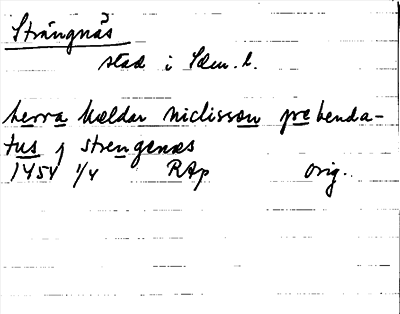 Strängnäs
stad i Söm. l.
herra Kældar niclisson prebenda-
tus j strengenæs
1454 1/4 RAp orig.